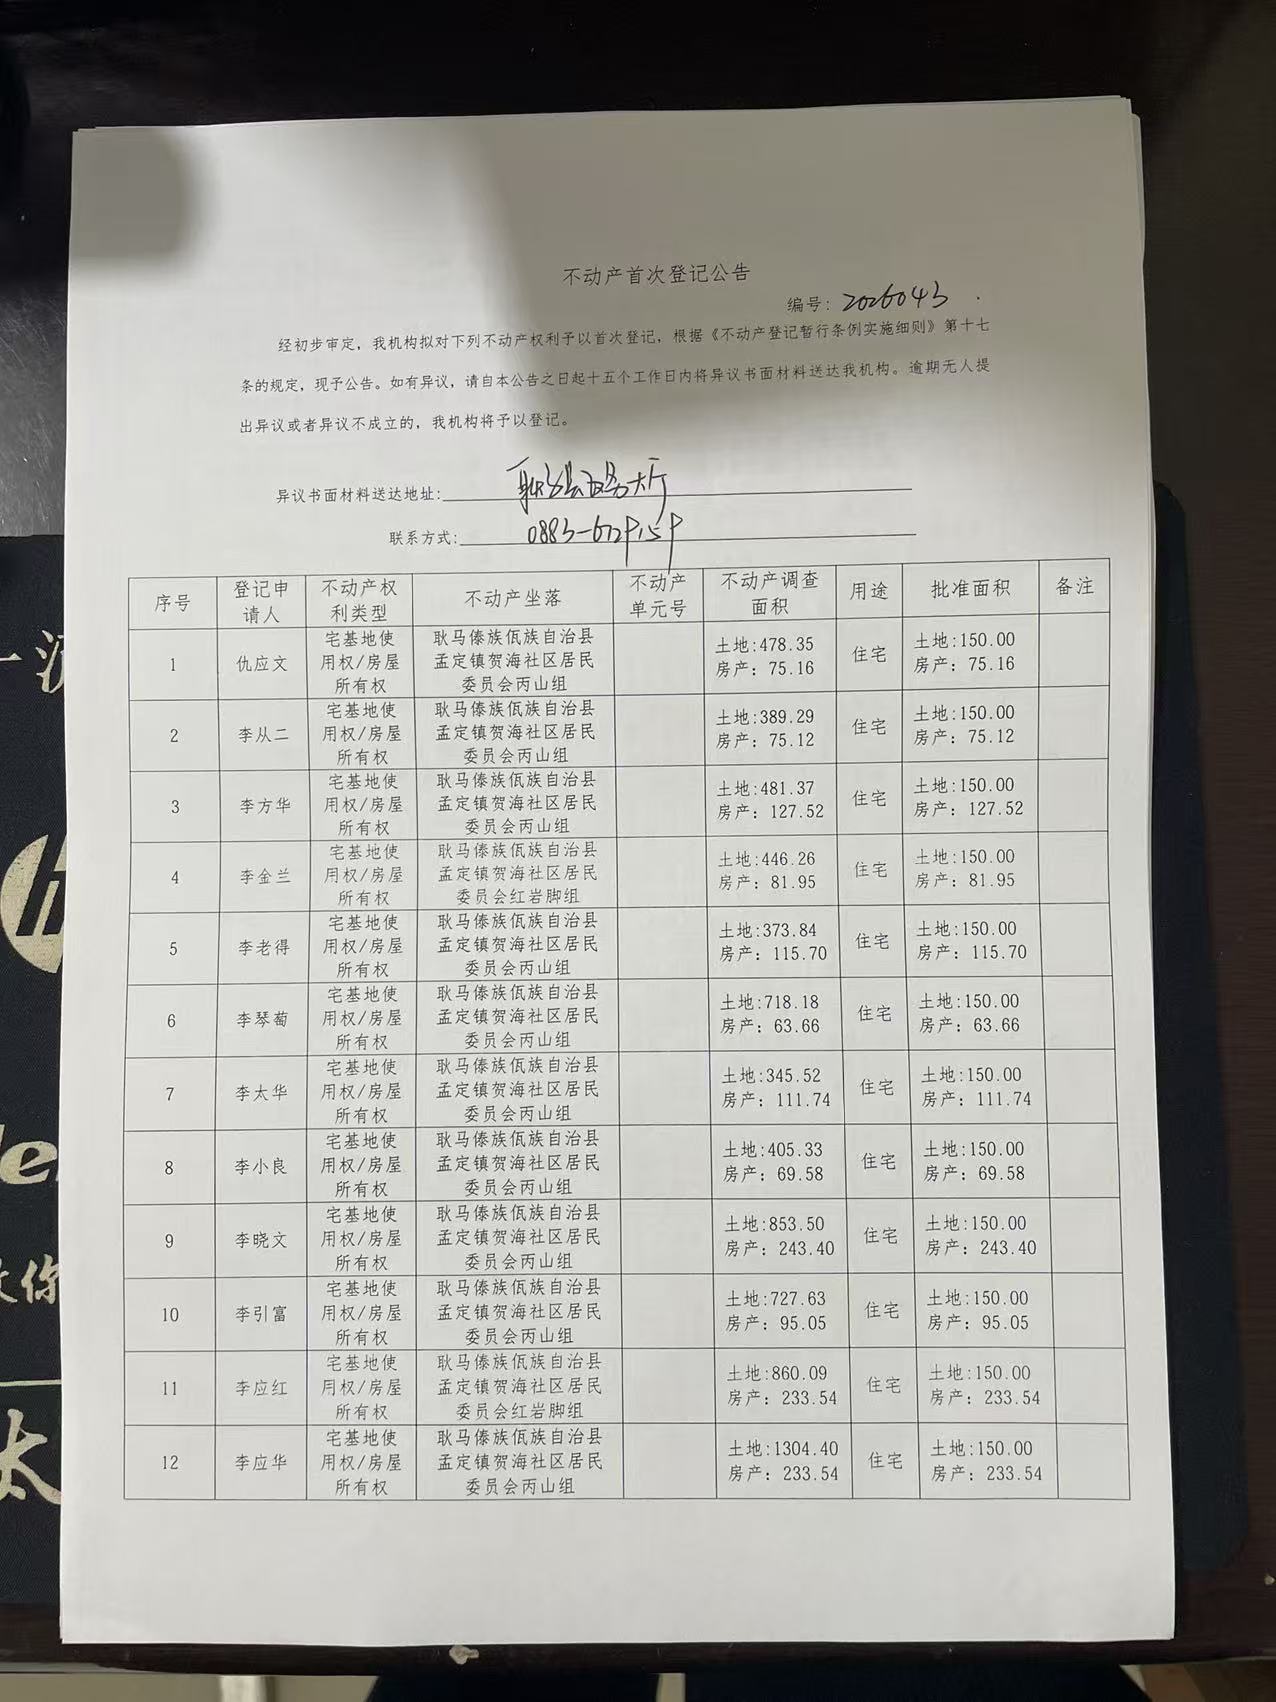 不动产首次登记公告
编号: 2026043
经初步审定，我机构拟对下列不动产权利予以首次登记，根据《不动产登记暂行条例实施细则》第十七
条的规定，现予公告。如有异议，请自本公告之日起十五个工作日内将异议书面材料送达我机构。逾期无人提
出异议或者异议不成立的，我机构将予以登记。
异议书面材料送达地址: 耿马县政务大厅
联系方式: 0883-
序号 登记申请人 不动产权利类型 不动产坐落 不动产单元号 不动产调查面积 用途 批准面积 备注
1 仇应文 宅基地使用权/房屋所有权 耿马傣族佤族自治县孟定镇贺海社区居民委员会丙山组 土地:478.35 房产: 75.16 住宅 土地:150.00 房产: 75.16
2 李从二 宅基地使用权/房屋所有权 耿马傣族佤族自治县孟定镇贺海社区居民委员会丙山组 土地:389.29 房产: 75.12 住宅 土地:150.00 房产: 75.12
3 李方华 宅基地使用权/房屋所有权 耿马傣族佤族自治县孟定镇贺海社区居民委员会丙山组 土地:481.37 房产: 127.52 住宅 土地:150.00 房产: 127.52
4 李金兰 宅基地使用权/房屋所有权 耿马傣族佤族自治县孟定镇贺海社区居民委员会红岩脚组 土地:446.26 房产: 81.95 住宅 土地:150.00 房产: 81.95
5 李老得 宅基地使用权/房屋所有权 耿马傣族佤族自治县孟定镇贺海社区居民委员会丙山组 土地:373.84 房产: 115.70 住宅 土地:150.00 房产: 115.70
6 李琴萄 宅基地使用权/房屋所有权 耿马傣族佤族自治县孟定镇贺海社区居民委员会丙山组 土地:718.18 房产: 63.66 住宅 土地:150.00 房产: 63.66
7 李太华 宅基地使用权/房屋所有权 耿马傣族佤族自治县孟定镇贺海社区居民委员会丙山组 土地:345.52 房产: 111.74 住宅 土地:150.00 房产: 111.74
8 李小良 宅基地使用权/房屋所有权 耿马傣族佤族自治县孟定镇贺海社区居民委员会丙山组 土地:405.33 房产: 69.58 住宅 土地:150.00 房产: 69.58
9 李晓文 宅基地使用权/房屋所有权 耿马傣族佤族自治县孟定镇贺海社区居民委员会丙山组 土地:853.50 房产: 243.40 住宅 土地:150.00 房产: 243.40
10 李引富 宅基地使用权/房屋所有权 耿马傣族佤族自治县孟定镇贺海社区居民委员会丙山组 土地:727.63 房产: 95.05 住宅 土地:150.00 房产: 95.05
11 李应红 宅基地使用权/房屋所有权 耿马傣族佤族自治县孟定镇贺海社区居民委员会红岩脚组 土地:860.09 房产: 233.54 住宅 土地:150.00 房产: 233.54
12 李应华 宅基地使用权/房屋所有权 耿马傣族佤族自治县孟定镇贺海社区居民委员会丙山组 土地:1304.40 房产: 233.54 住宅 土地:150.00 房产: 233.54